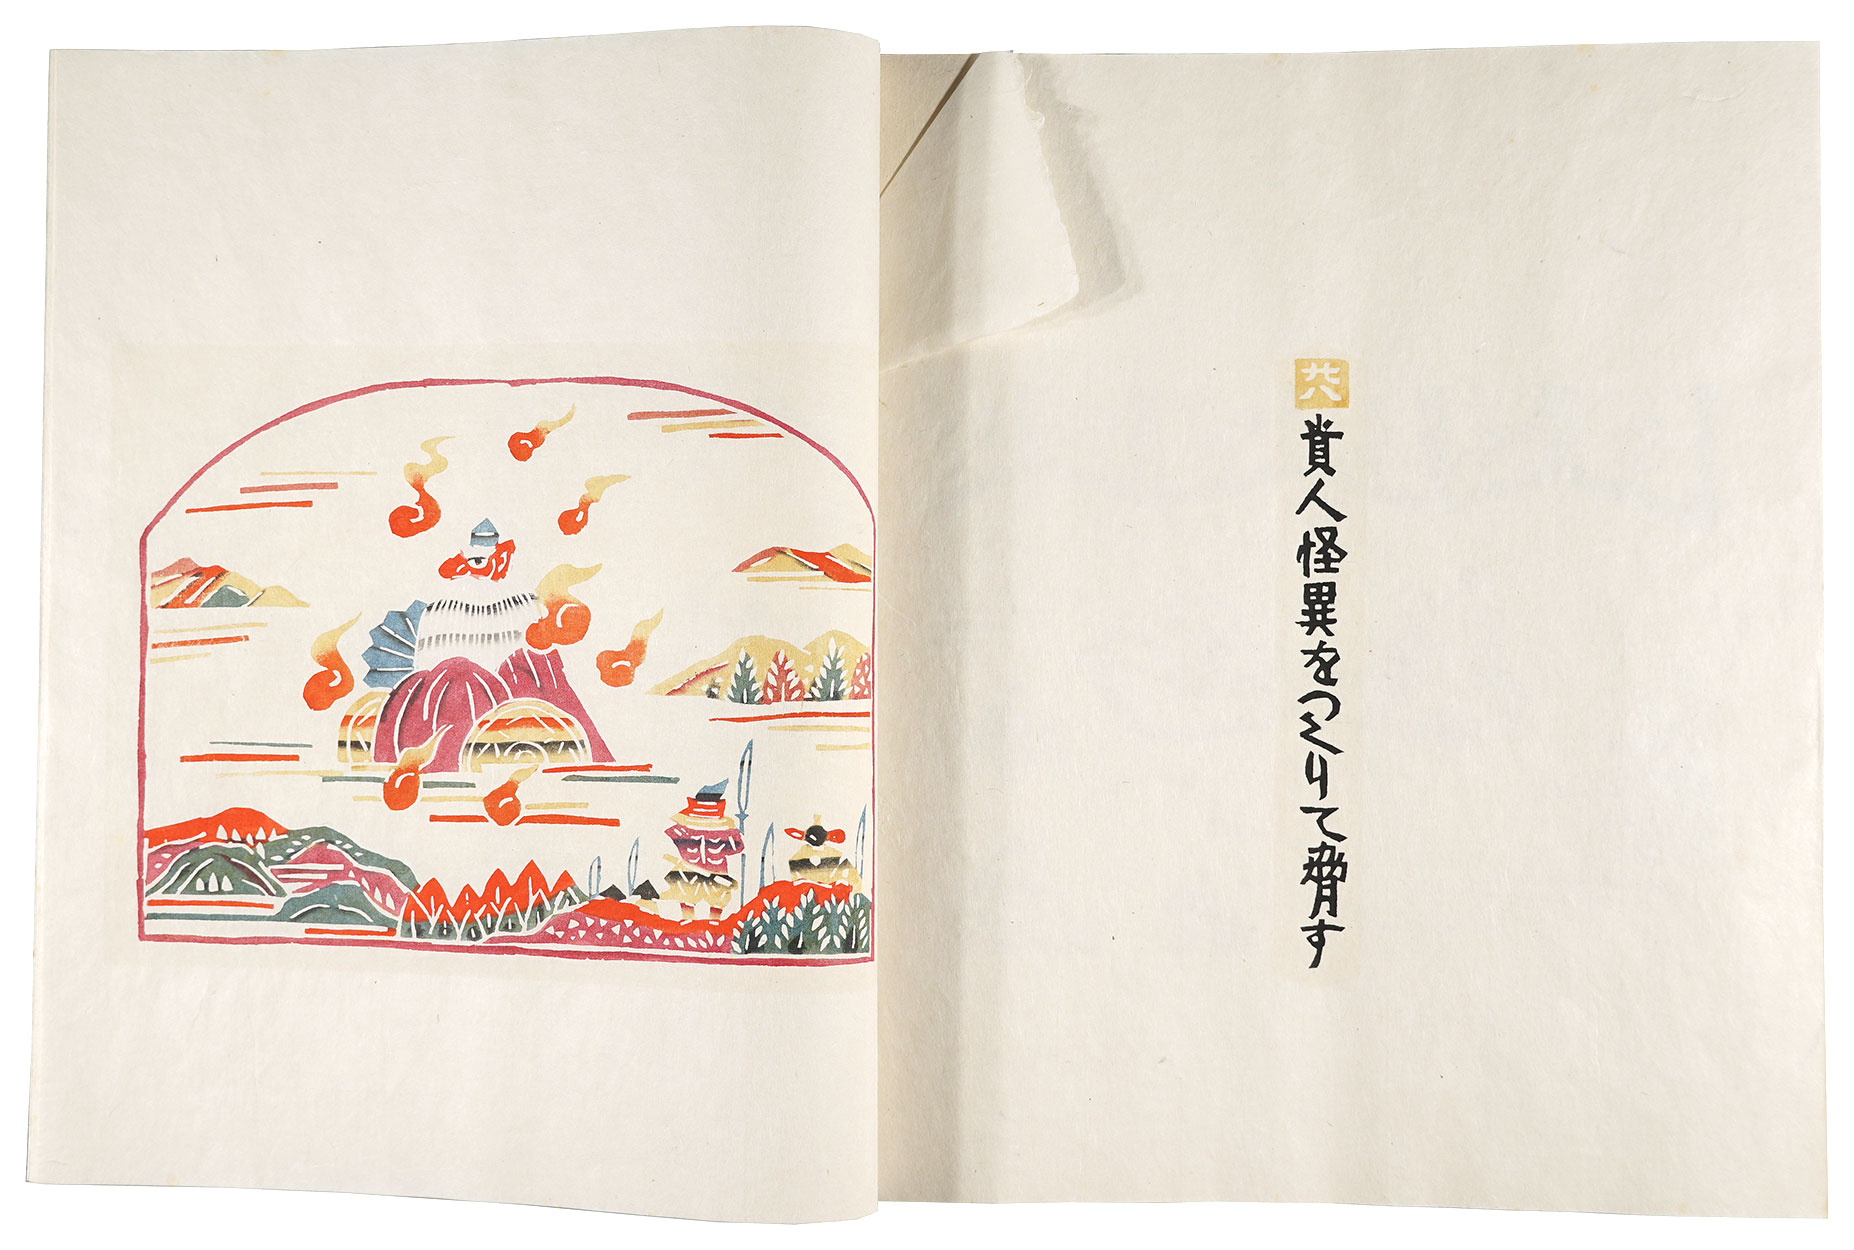 廿八
貴人怪異をつくりて脅す